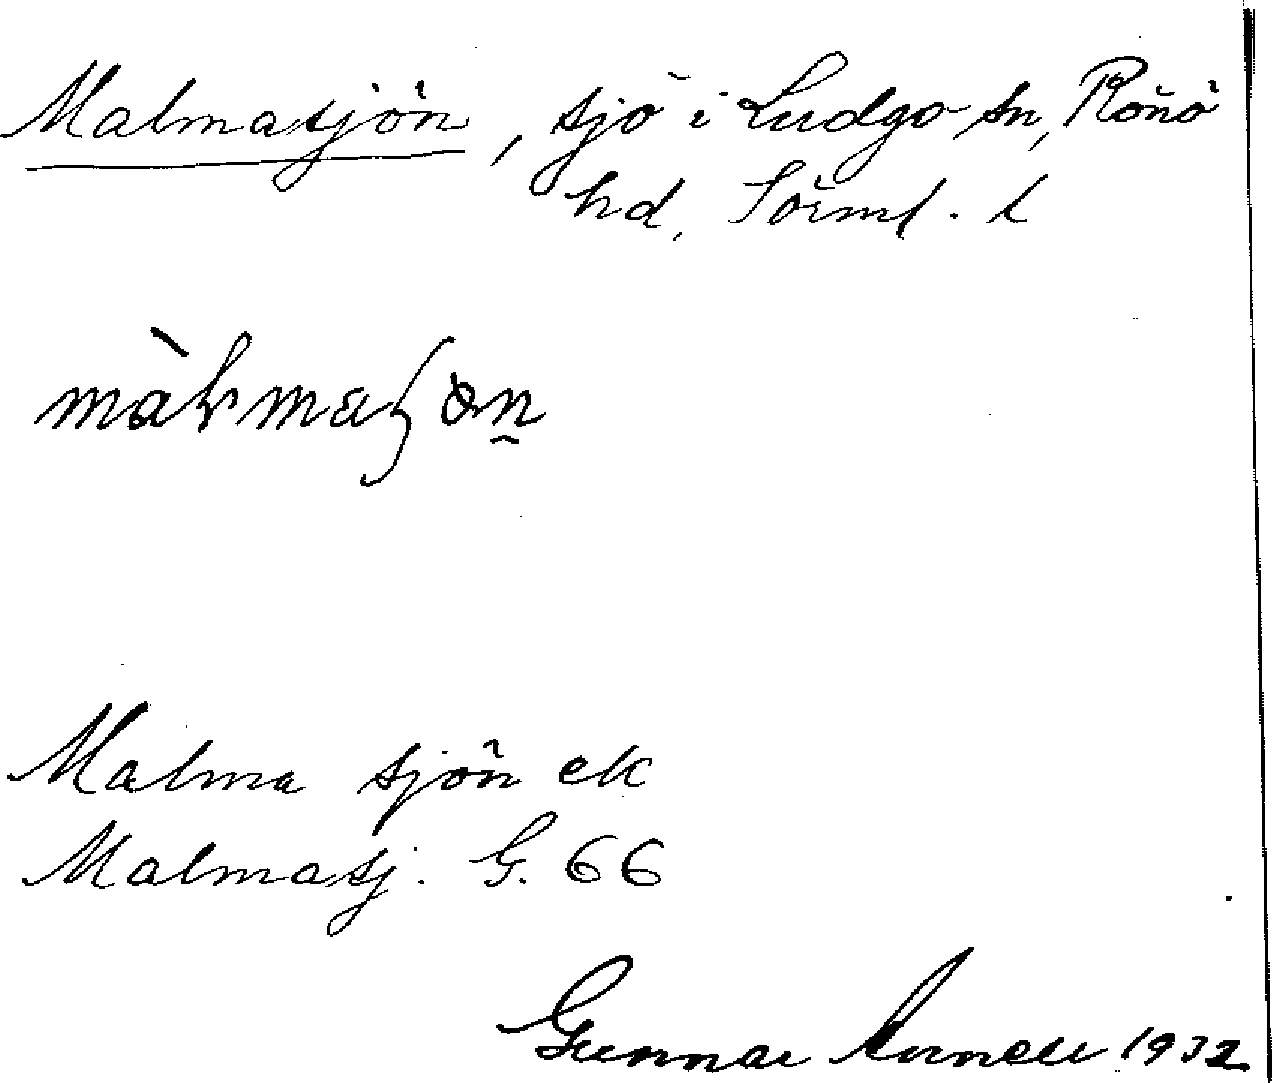 Malmasjön, sjö i Ludgo sn, Rönö
hd, Sörml. l
Malma sjön ek
Malmasj. G. 66
Gunnar 1932